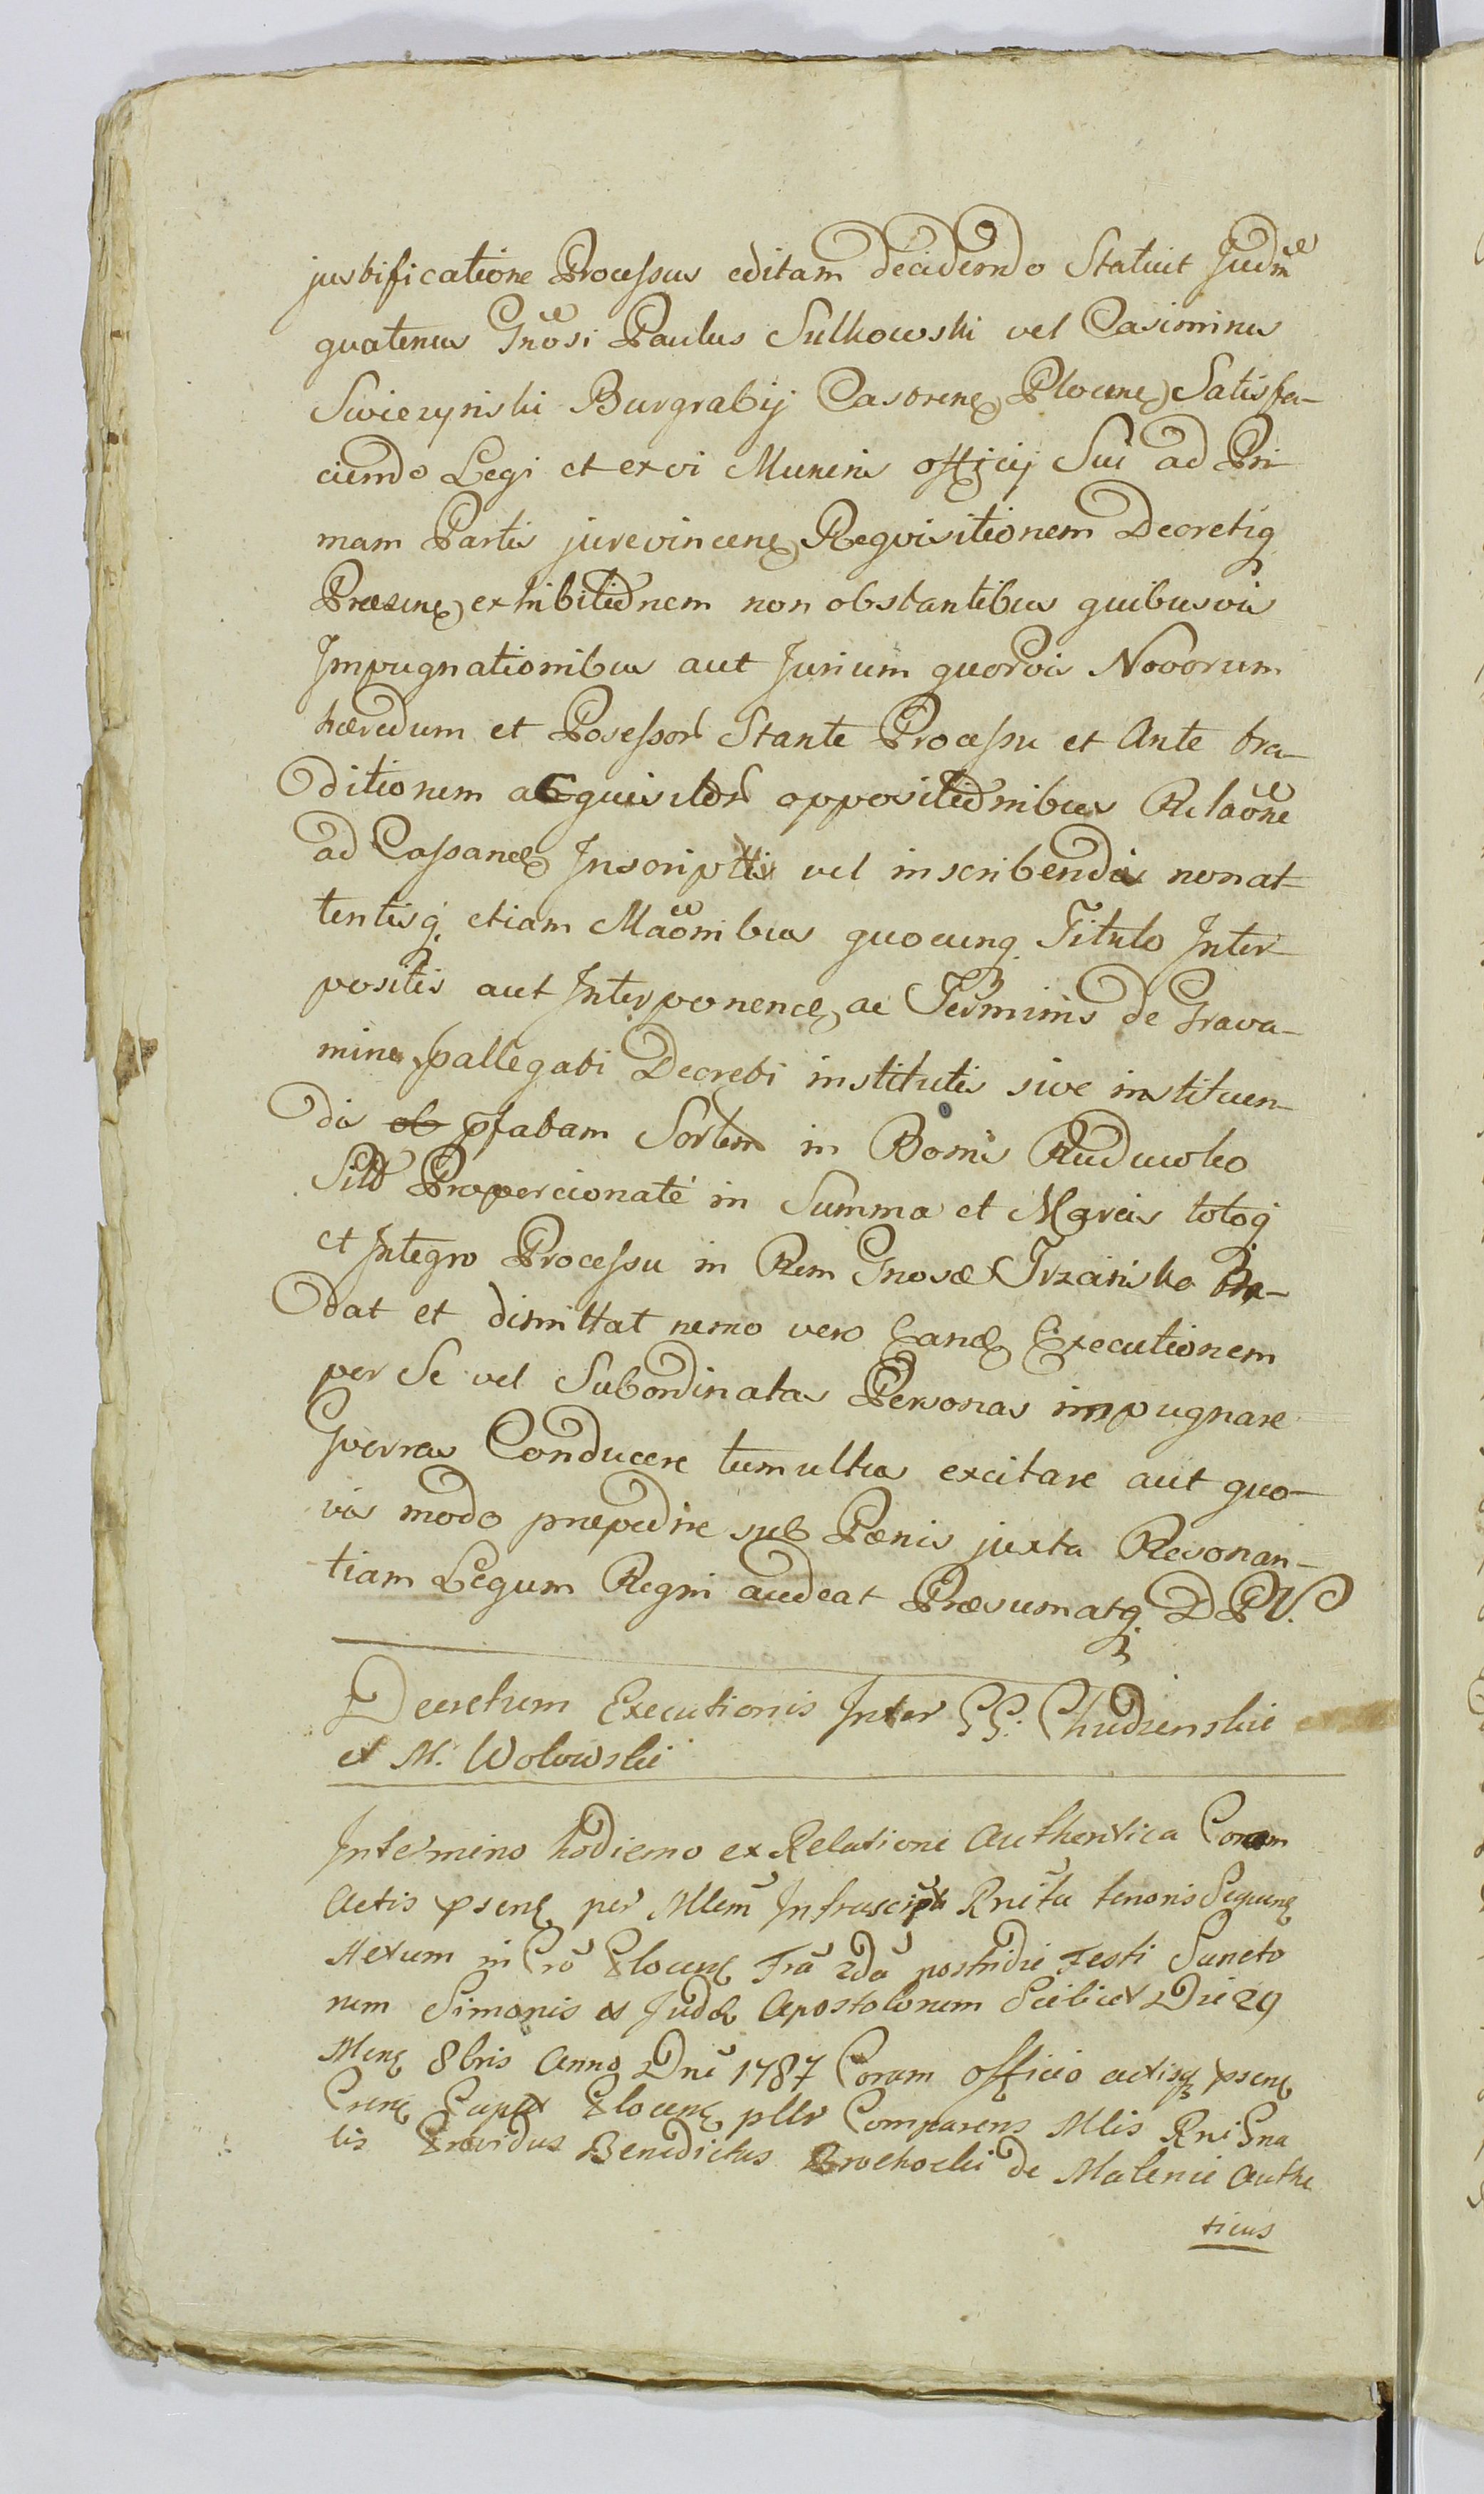 justificatione Processus editam decidendo Statuit Judm
quatenus Gnosi Paulus Sulkowski vel Casimirus
Swiezynski Burgrabij Castrens Plocens Satisfa-
ciendo Legi et ex vi Muneris officij Sui ad Pri
mam Partis jurevincens Requisitionem Decretiq
Præsens exhibitionem non obstantibus quibusvis
Impugnationibus aut Jurium quorvis Novorum
hæredum et Posessor Stante Processu et Ante tra-
ditionem acquisitor oppositionibus Relaõne
ad Cassand Inscriptis vel inscribendis nonat-
tentisq etiam Maõnibus quocunq Titulo Inter-
positis aut Interponend ac Terminis de Grava-
mine pallegati Decreti institutis sive instituen-
dis ob pfatam Sortem in Bonis Rudowko
Sitt Proporcionaté in Summa et Marcis totoq
et Integro Processu in Rem Gnosæ Trzcinska tra-
dat et dimittat nemo vero Eand Executionem
per Se vel Subordinatas Personas impugnare
Gverras Conducere tumultus excitare aut quo-
vis modo præpedire sub Pœnis juxta Resonan-
tiam Legum Regni audeat Præsumatq D P V.
Decretum Executionis Inter GG: Chudzenskie
et M. Wolowskie
Intermino hodierno ex Relatione Authentica Coram
Actis psens per Mlem Infrascript Rnita tenoris Sequens
Actum in Cro Plocens Fra 2da postridie Festi Sancto
rum Simonis et Judæ Apostolorum Scilicet Die 29
Mens 8bris Anno Dni 1787 Coram officio actisq psens
Crens Caput Plocens pllr Comparens Mlis Rni Gna
lis Providus Benedictus Brochocki de Malenie Authe
ticus